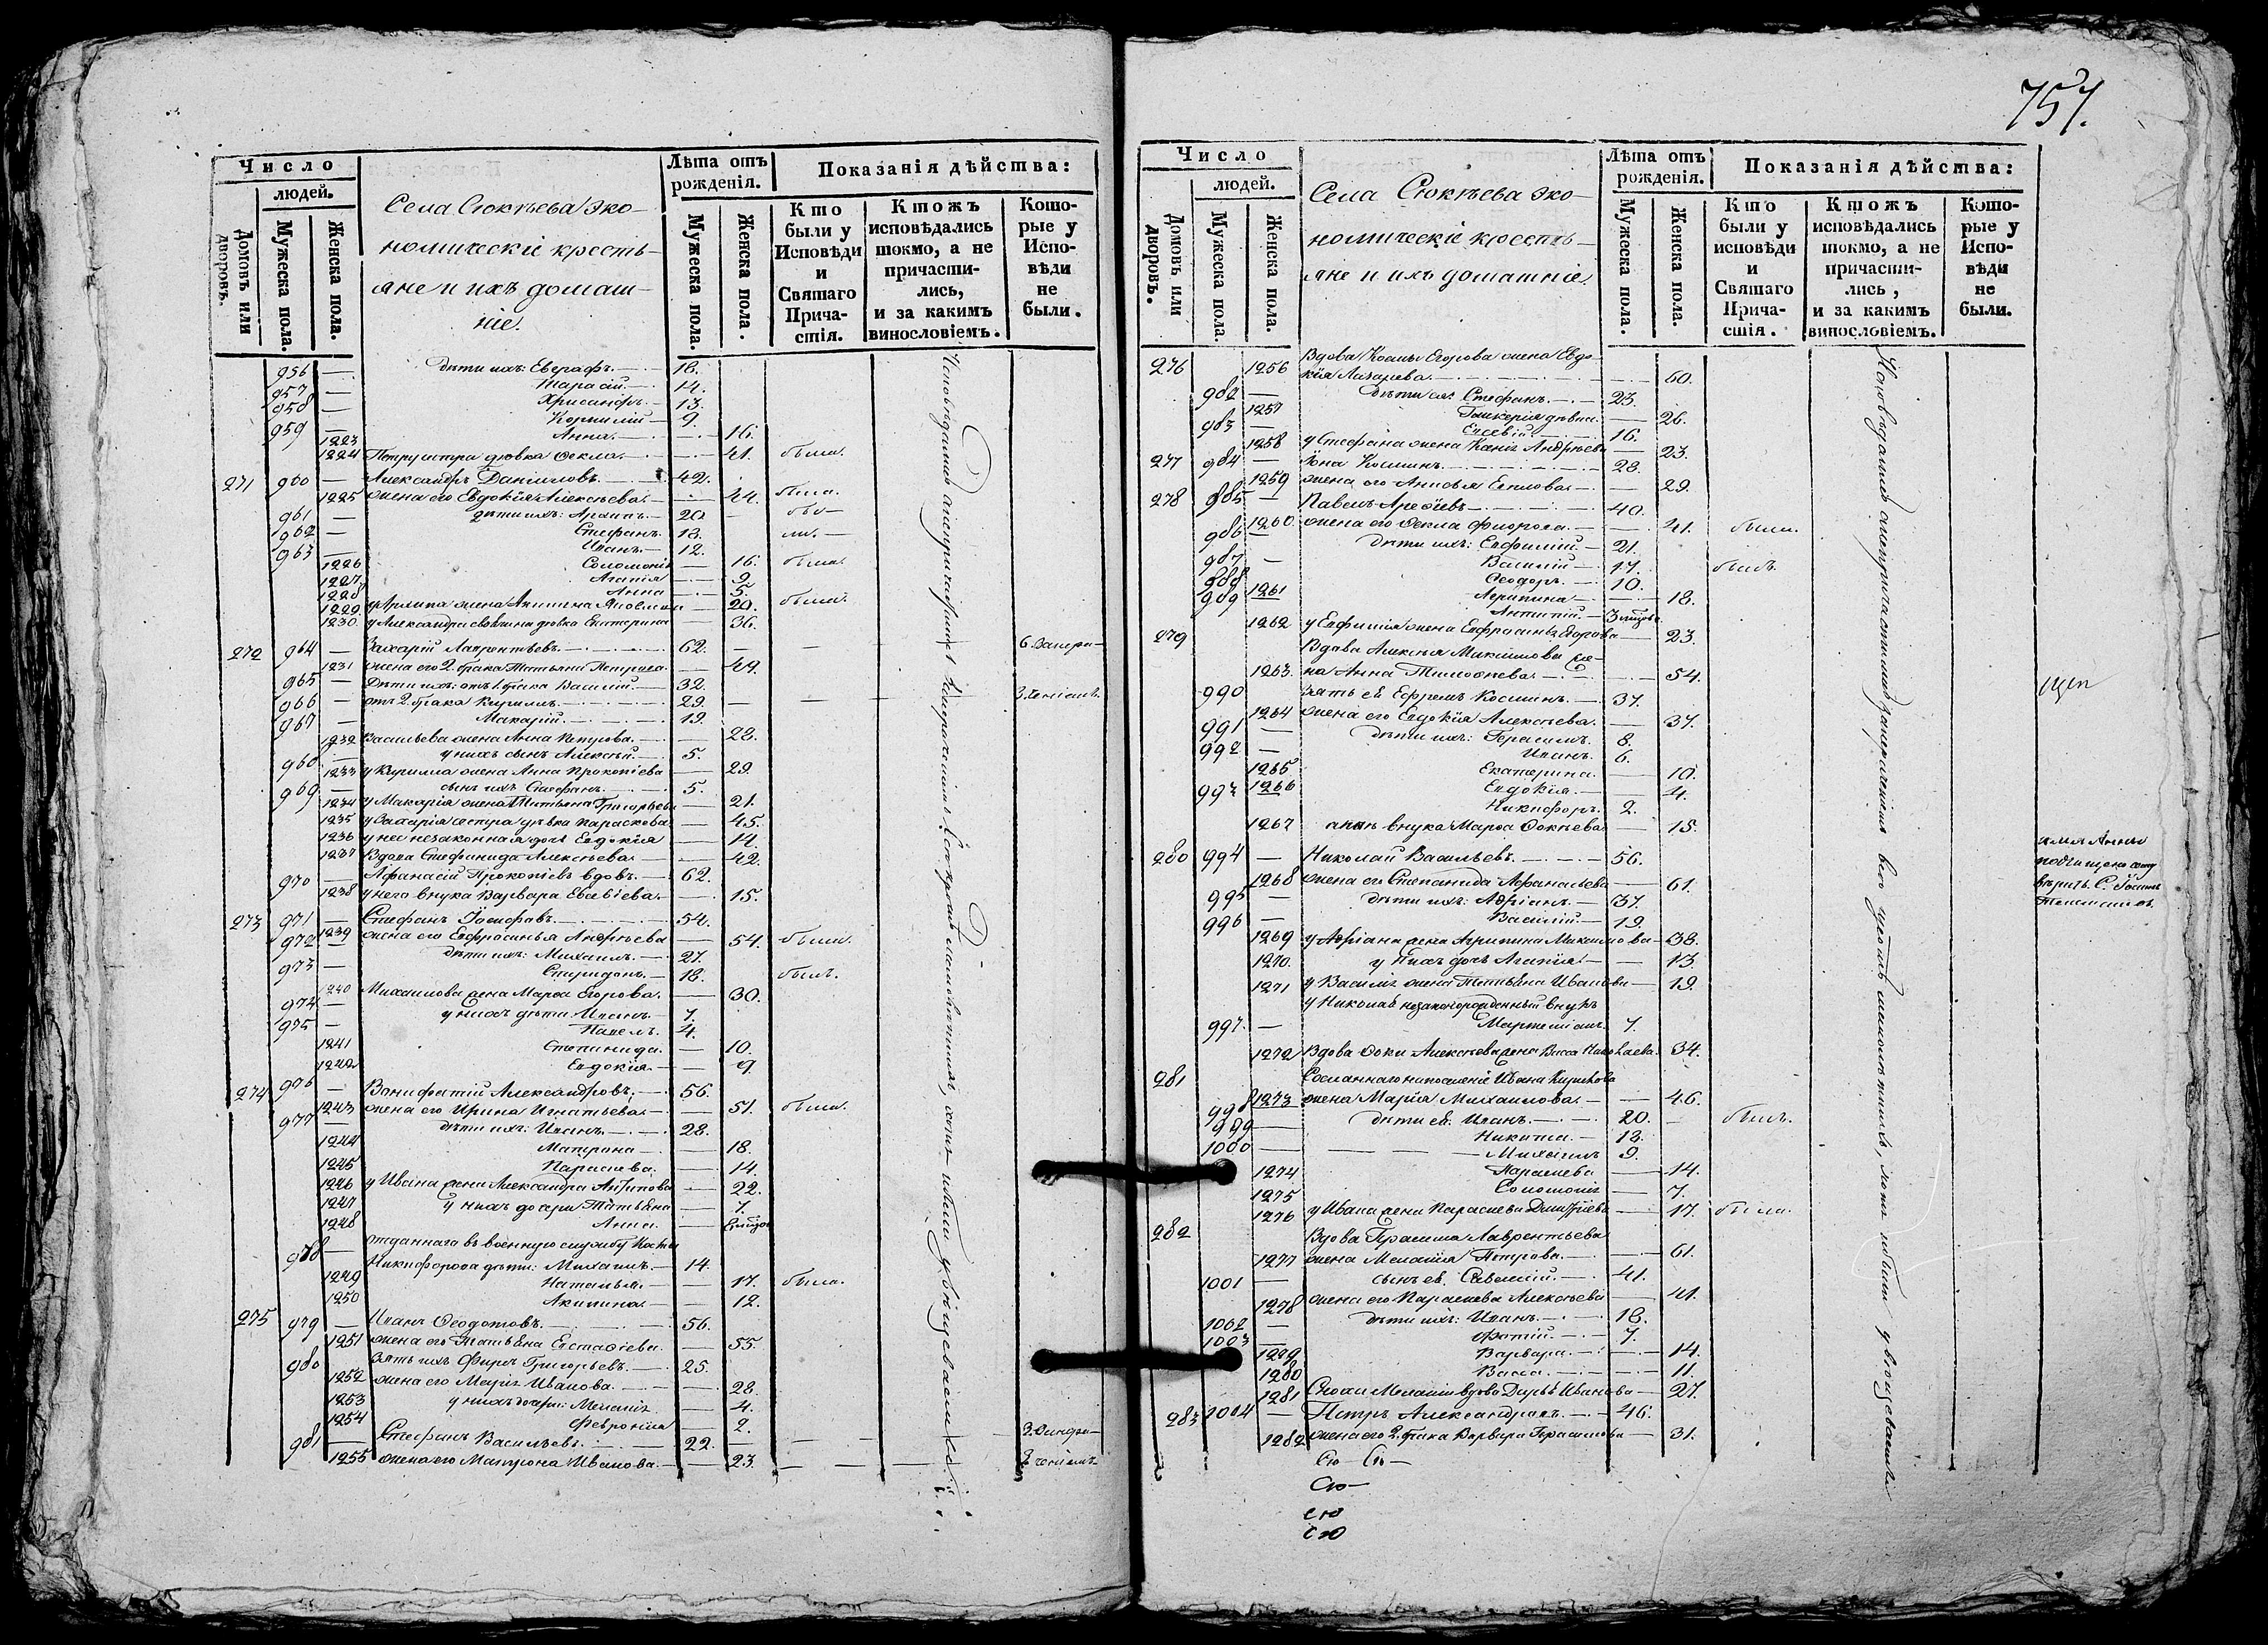 757.
Число
людей.
Домовъ или дворовъ.
Мужеска пола.
Женска пола.
Села Сюкѣева эко-
номическіе кресть-
яне и ихъ домаш-
ніе.
Лѣта отъ рожденія.
Мужеска пола.
Женска пола.
Показанія дѣйства:
Кто были у Исповѣди и Святаго Причастія.
Ктожъ исповѣдались токмо, а не причастились, и за какимъ винословіемъ.
Которые у Исповѣди не были.
956 — Дѣти ихъ: Евграфъ. 18.
957 — Тарасій. 14.
958 — Хрисанфъ. 13.
959 — Корнилій 9.
1223 Анна. 16.
1224 дѣвка Ѳекла. 41. была.
271 960 — Александръ Даниловъ. 42.
1225 жена его Евдокія Алексѣева. 44. была.
961 — дѣти ихъ: Архипъ. 20 бы-
962 — Стефанъ. 18. ли.
963 — Иванъ. 12.
1226 Соломонія 16. была.
1227 Агапія 9.
1228 Анна 5.
1229 у Архипа жена Акилина Яковлева 20. была.
1230 у Александра дѣвка Екатерина 36.
272 964 — Захарій Лаврентьевъ. 62.
1231 жена его 2. брака Татьяна Петрова. 49.
965 — Дѣти ихъ: отъ 1. брака Василій. 32.
966 — отъ 2. брака Кириллъ. 29.
967 — Макарій. 19.
1232 Васильева жена Анна Петрова. 28.
968 — у нихъ сынъ Алексѣй. 5.
1233 у Кирилла жена Анна Прокопіева 29.
969 — сынъ ихъ Стефанъ. 5.
1234 у Макарія жена Татьяна Григорьева 21.
1235 у Захарія сестра дѣвка Параскева 45.
1236 у нее незаконная дочь Евдокія 14.
1237 Вдова Стефанида Алексѣева. 42.
970 — Афанасій Прокопіевъ вдовъ. 62.
1238 у него внука Варвара Евсевіева. 15.
273 971 — Стефанъ Іосифовъ. 54.
972 1239 жена его Евфросинья Андреева 54. была.
дѣти ихъ: Михаилъ. 27.
973 — Спиридонъ. 18. былъ.
1240 Михаилова жена Марѳа Егорова. 30.
974 — у нихъ дѣти: Иванъ. 7.
975 — Павелъ. 4.
1241 Степанида. 10.
1242 Евдокія. 9.
274 976 — Вонифатій Александровъ. 56.
1243 жена его Ирина Игнатьева. 51. была.
977 — дѣти ихъ: Иванъ. 28.
1244 Матрона 18.
1245 Параскева. 14.
1246 у Ивана жена Александра Антипова 22.
1247 у нихъ дочери Татьяна 7.
1248 Анна.
978 — отданнаго въ военную службу
Никифорова дѣти: Михаилъ. 14.
1249 Наталья. 17. была.
1250 Акилина 12.
275 979 — Иванъ Ѳедотовъ. 56.
1251 жена его Татьяна Евстафіева. 55.
980 зять ихъ Фирсъ Григорьевъ. 25.
1252 жена его Марія Иванова. 28.
1253 у нихъ дочери: Меланія 4.
1254 Февронія 2.
981 — Стефанъ Васильевъ. 22.
1255 жена его Матрона Иванова. 23.
Число
людей.
Домовъ или дворовъ.
Мужеска пола.
Женска пола.
Села Сюкѣева эко-
номическіе кресть-
яне и ихъ домашніе.
Лѣта отъ рожденія.
Мужеска пола.
Женска пола.
Показанія дѣйства:
Кто были у исповѣди и Святаго Причастія.
Ктожъ исповѣдались токмо, а не причастились, и за какимъ винословіемъ.
Которые у Исповѣди не были.
276 1256 Вдова Космы Егорова жена Евдо-
кія Лазарева. 60.
982 — дѣти ея: Стефанъ. 23.
1257 Гликерія дѣвка. 26.
983 — Евсевій. 16.
1258 у Стефана жена Андреева 23.
277 984 — Іона Космин. 28.
1259 жена его Анисья Евплова. 29.
278 985 — Павелъ Арефьевъ. 40.
1260 жена его Ѳекла Фирсова. 41. была.
986 — дѣти ихъ: Евфимій. 21.
987 — Василій 17. былъ.
988 Ѳеодоръ. 10.
989 1261 Агрипина 18.
Антипій. 3
1262 у Евфимія жена Евфросинья Егорова 23.
279 Вдова Алексѣя Максимова же-
1263 на Анна Тимофѣева. 54.
990 зять ея Ефремъ Космин. 37.
1264 жена его Евдокія Алексѣева. 37.
991 — дѣти ихъ: Герасимъ. 8.
992 — Иванъ. 6.
1265 Екатерина. 10.
993 1266 Евдокія. 4.
Никифоръ. 2.
1267 внука Марѳа Фокѣева 15.
280 994 — Николай Васильевъ. 56.
1268 жена его Степанида Афанасьева 61.
995 — дѣти ихъ: Адріанъ. 37.
996 — Василій. 19.
1269 у Адріана жена Агрипина Максимова 38.
1270 у нихъ дочь Агапія 13.
1271 у Василія жена Татьяна Иванова 19.
у Николая незаконорожденный внукъ
997. — 7.
1272 Вдова Фоки Алексѣева жена Васса Николаева. 34.
281 Сосланнаго на поселеніе Ивана Кирилова
998 1273 жена Марія Михаилова. 46.
999 — дѣти ея: Иванъ. 20. былъ.
1000 — Никита. 12.
Михаилъ 9.
1274 Параскева 14.
1275 Соломонія 7.
1276 у Ивана жена Параскева Дмитріева 17. была.
282 Вдова Герасима Лаврентьева
1277 жена Меланія Петрова. 61.
1001 — сынъ ея. Савелій. 41.
1278 жена его Параскева Алексѣева 41.
1002 — дѣти ихъ: Иванъ. 18.
1003 — Фотій. 7.
1279 Варвара. 14.
1280 Васса. 11.
1281 Сноха Меланіи вдова Дарья Иванова 27.
283 1004 — Петръ Александровъ. 46.
1282 жена его 2. брака Варвара Герасимова 31.
Сю — Сю —
Сю —
сю
сю